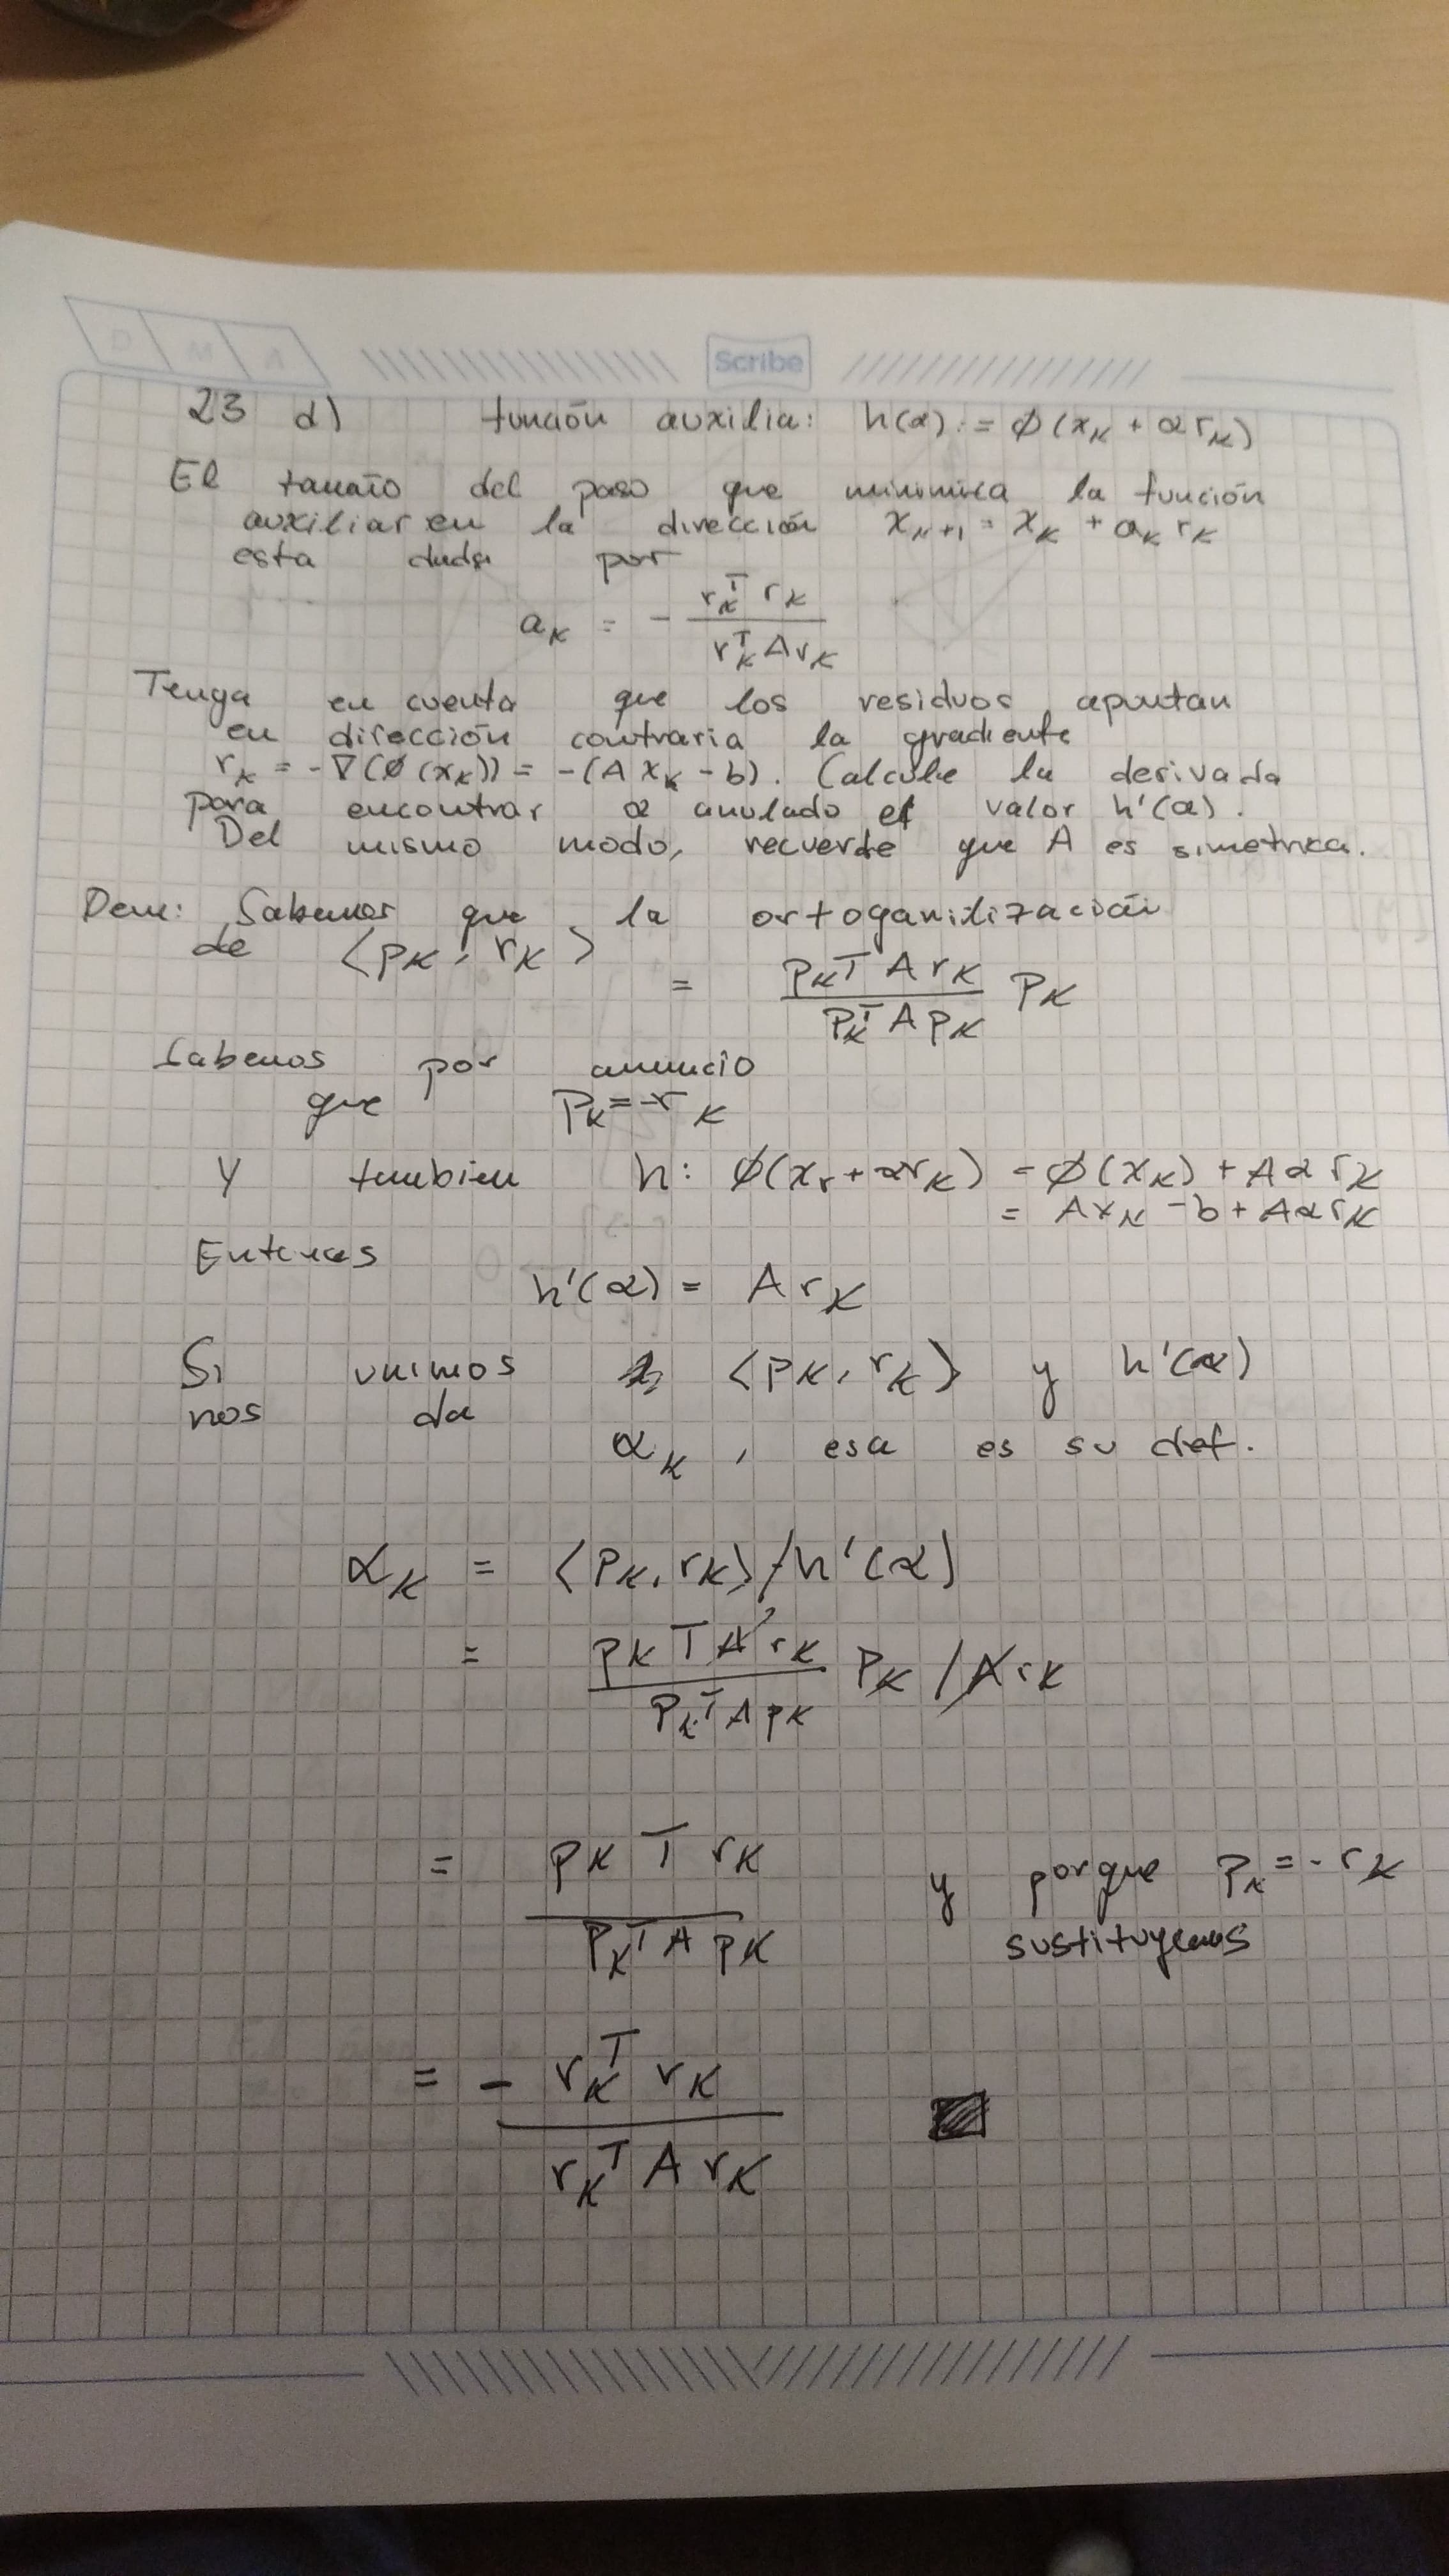 Scribe
23 d) función auxilia: h(α) := φ(x_K + α r_K)
El tamaño del paso que minimiza la función
auxiliar en la dirección x_{K+1} = x_K + a_K r_K
esta dada por
a_K = - r_K^T r_K / r_K^T A r_K
Tenga en cuenta que los residuos apuntan
en dirección contraria la gradiente
r_K = -∇(φ(x_K)) = -(A x_K - b). Calcule la derivada
para encontrar α anulado el valor h'(α).
Del mismo modo, recuerde que A es simetrica.
Dem: Sabemos que la ortoganilización
de ⟨p_K, r_K⟩
= p_K^T A r_K / p_K^T A p_K p_K
Sabemos por anuncio
que p_K = -r_K
Y tambien h: φ(x_r + α r_K) = φ(x_K) + A α r_K
= A x_K - b + A α r_K
Entonces
h'(α) = A r_K
Si unimos ⟨p_K, r_K⟩ y h'(α)
nos da
α_K, esa es su def.
α_K = ⟨p_K, r_K⟩ / h'(α)
= p_K^T A r_K / p_K^T A p_K p_K / A r_K
= p_K^T r_K / p_K^T A p_K y porque p_K = - r_K
sustituyemos
= - r_K^T r_K / r_K^T A r_K